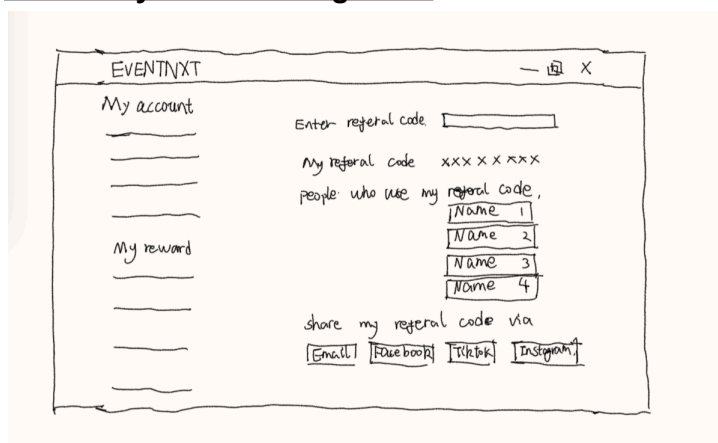 EVENTNXT
My account
My reward
Enter referal code
My referal code xxx x x xxx
people who use my referal code,
Name 1
Name 2
Name 3
Name 4
share my referal code via
Email Facebook Tiktok Instagram